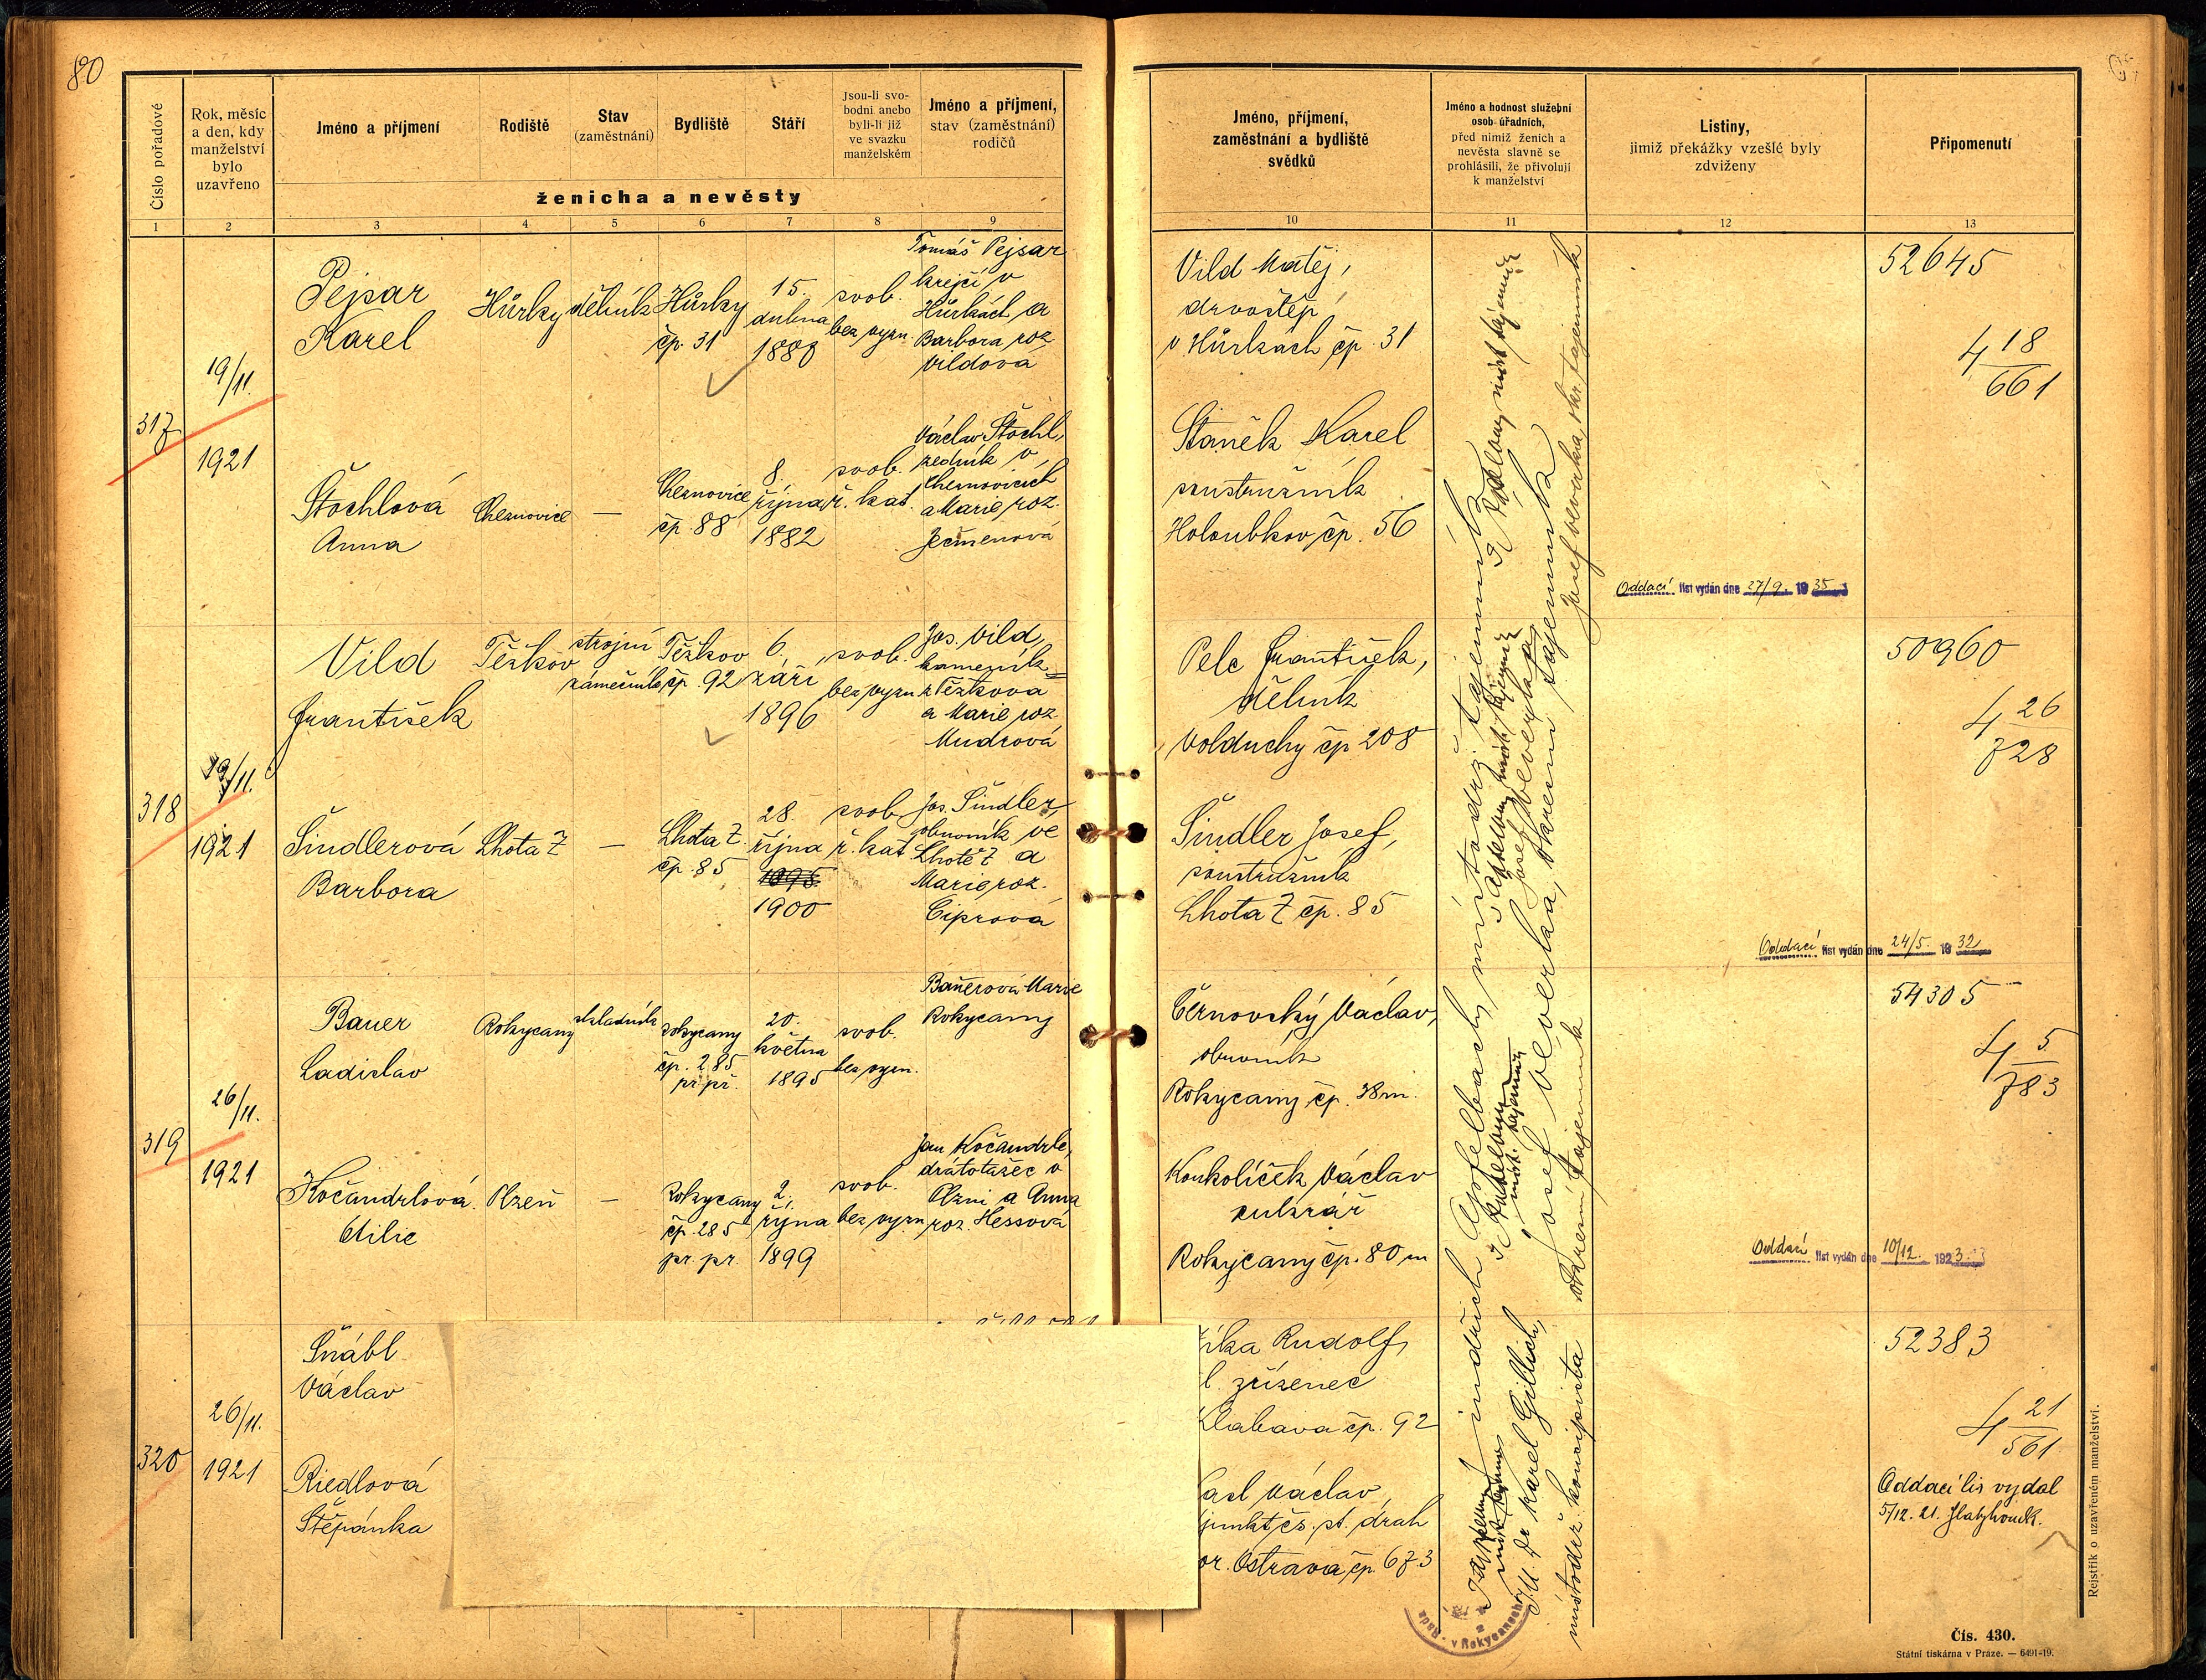 80
Číslo pořadové
Rok, měsíc
a den, kdy
manželství
bylo
uzavřeno
Jméno a příjmení
Rodiště
Stav
(zaměstnání)
Bydliště
Stáří
Jsou-li svo-
bodni anebo
byli-li již
ve svazku
manželském
Jméno a příjmení,
stav (zaměstnání)
rodičů
ženicha a nevěsty
1 2 3 4 5 6 7 8 9
Jméno, příjmení,
zaměstnání a bydliště
svědků
Jméno a hodnost služební
osob úřadních,
před nimiž ženich a
nevěsta slavně se
prohlásili, že přivolují
k manželství
Listiny,
jimiž překážky vzešlé byly
zdviženy
Připomenutí
10 11 12 13
317
19/11.
1921
Pejsar
Karel
Hůrky
dělník
Hůrky
čp. 31
15.
dubna
1880
svob.
bez vyzn.
Tomáš Pejsar
krejčí v
Hůrkách a
Barbora roz.
Vildová
Štochlová
Anna
Cheznovice
—
Cheznovice
čp. 88
8.
října
1882
svob.
ř. kat.
Václav Štochl,
zedník v
Cheznovicích
a Marie roz.
Ječmenová
Vild Matěj,
drvoštěp
v Hůrkách čp. 31
Staněk Karel
soustružník
Holoubkov čp. 56
Oddací list vydán dne 27/9. 1935
52645
4 18/661
318
19/11.
1921
Vild
František
Těškov
strojní
zámečník
Těškov
čp. 92
6.
září
1896
svob.
bez vyzn
Jos. Vild,
kameník
z Těškova
a Marie roz.
Mudrová
Šindlerová
Barbora
Lhota Z
—
Lhota Z.
čp. 85
28.
října
1898
1900
svob
ř. kat
Jos. Šindler,
obuvník ve
Lhotě Z a
Marie roz.
Ciprová
Pelc František,
dělník
Volduchy čp 208
Šindler Josef,
soustružník
Lhota Z čp. 85
Oddací list vydán dne 24/5. 1932
50960
4 26/728
319
26/11.
1921
Bauer
Ladislav
Rokycany
skladník
Rokycany
čp. 285
pr. př.
20.
května
1895
svob.
bez vyzn.
Bauerová Marie
Rokycany
Kočandrlová
Otilie
Plzeň
—
Rokycany
čp. 285
pr. pr.
2.
října
1899
svob.
bez vyzn
Jan Kočandrle,
drátotažec v
Plzni a Anna
roz. Hessová
Černovský Václav,
obuvník
Rokycany čp. 38 m.
Koukolíček Václav
cukrář
Rokycany čp. 80 m
Oddací list vydán dne 10/12. 1923
54305
4 5/783
320
26/11.
1921
Šnábl
Václav
Riedlová
Štěpánka
Rudolf,
zřízenec
Klabava čp. 92
Václav,
čs. st. drah
Ostrava čp. 673
52383
4 21/561
Oddací lis vydal
5/12. 21.
Jindřich Apfelbach, místodrž. tajemník
Josef Beverka, okresní tajemník
JU Dr Karel Gillich,
místodrž. koncipista
v Rokycanech
Rejstřík o uzavřeném manželství.
Čís. 430.
Státní tiskárna v Praze. — 6491-19.